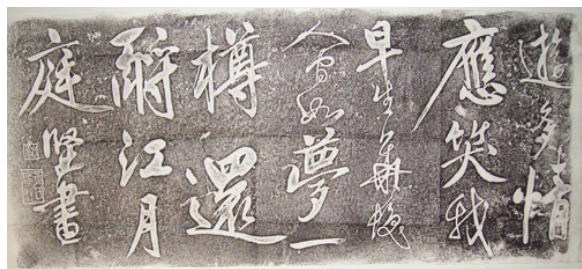 遊多情
應笑我
早生華髮
人間如夢一
樽還
酹江月
庭堅書